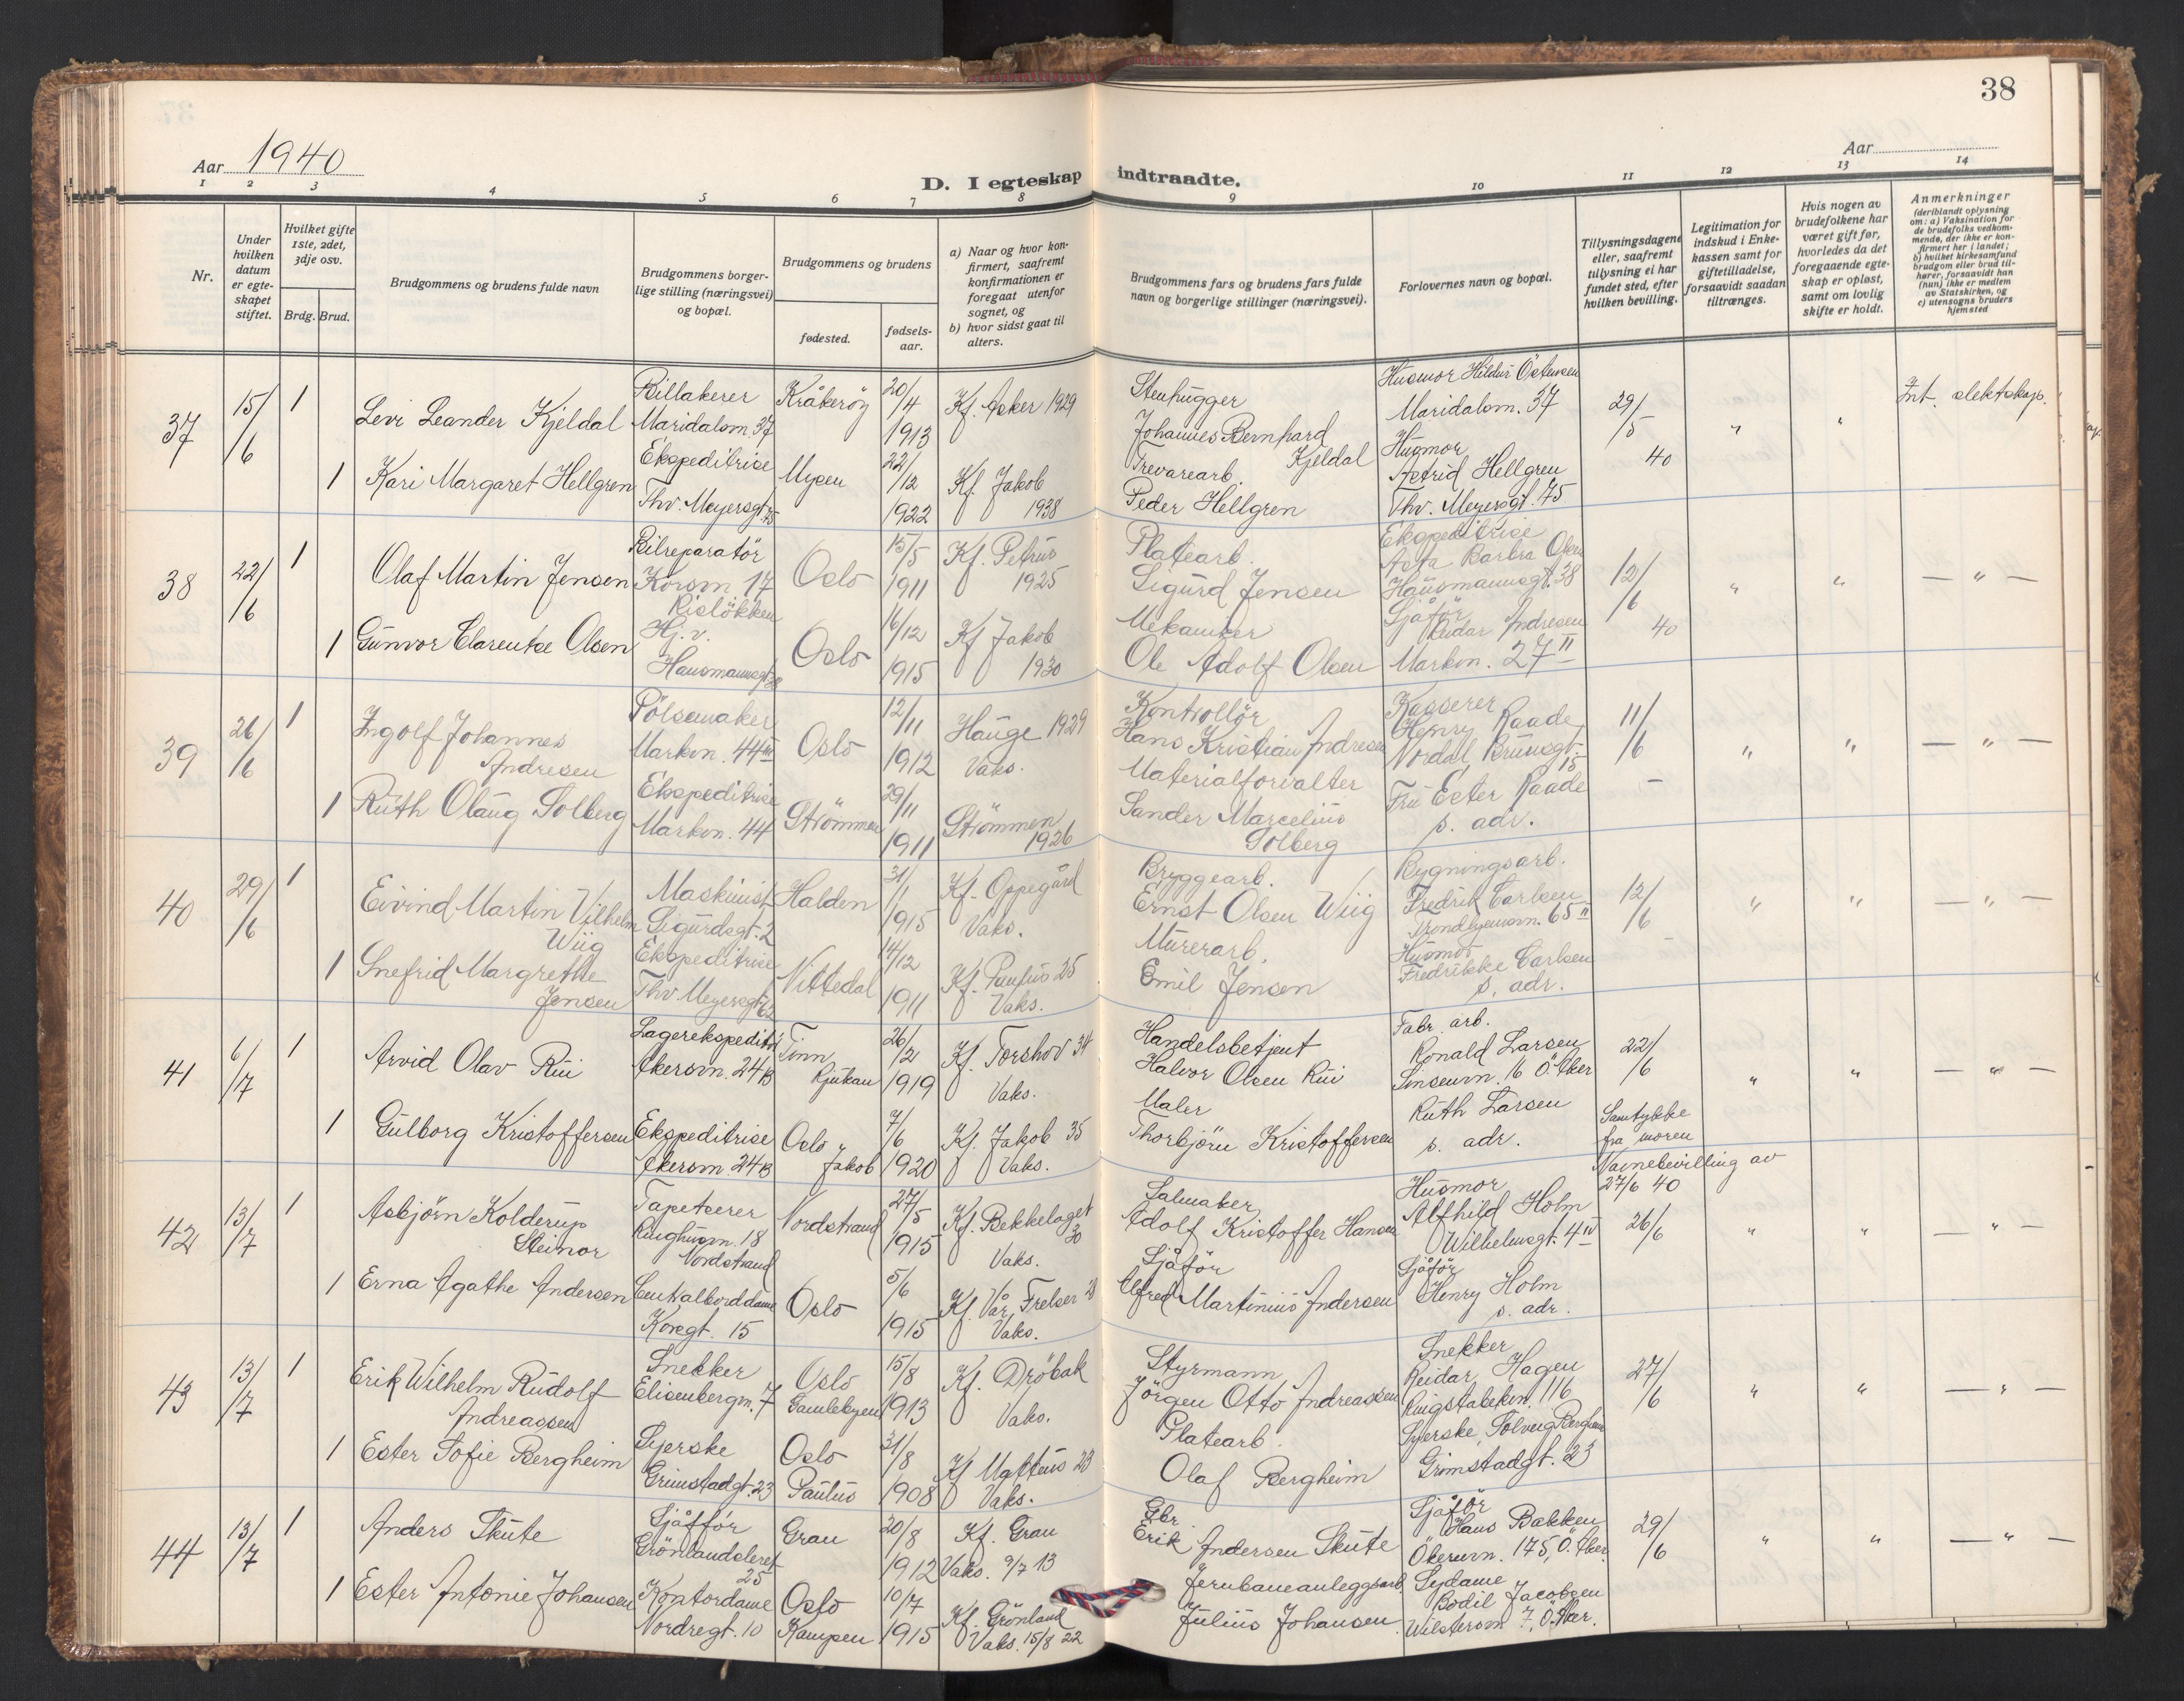 38
Aar 1940
Aar
D. I egteskap indtraadte.
1 2 3 4 5 6 7 8 9 10 11 12 13 14
Nr.
Under hvilken datum er egteskapet stiftet.
Hvilket gifte 1ste, 2det, 3dje osv.
Brdg. Brud.
Brudgommens og brudens fulde navn
Brudgommens borgerlige stilling (næringsvei) og bopæl.
Brudgommens og brudens
fødested.
fødselsaar.
a) Naar og hvor konfirmert, saafremt konfirmationen er foregaat utenfor sognet, og
b) hvor sidst gaat til alters.
Brudgommens fars og brudens fars fulde navn og borgerlige stillinger (næringsvei).
Forlovernes navn og bopæl.
Tillysningsdagene eller, saafremt tillysning ei har fundet sted, efter hvilken bevilling.
Legitimation for indskud i Enkekassen samt for giftetilladelse, forsaavidt saadan tiltrænges.
Hvis nogen av brudefolkene har været gift før, hvorledes da det foregaaende egteskap er opløst, samt om lovlig skifte er holdt.
Anmerkninger
(deriblandt oplysning om: a) Vaksination for de brudefolks vedkommende, der ikke er konfirmert her i landet; b) hvilket kirkesamfund brudgom eller brud tilhører, forsaavidt han (hun) ikke er medlem av Statskirken, og c) utensogns bruders hjemsted
37 15/6 1 Levi Leander Kjeldal Billakerer Maridalsvn 37 Kråkeröy 20/4 1913 Kf. Asker 1929 Stenhugger Johannes Bernhard Kjeldal Husmor Hildur Östensen Maridalsvn. 37 29/5 40 " " Int. slektskap.
1 Kari Margaret Hellgren Ekspeditrise Thv. Meyersgt. 75 Mysen 22/12 1922 Kf. Jakob 1938 Trevarearb. Peder Hellgren Husmor Astrid Hellgren Thv. Meyersgt. 75
38 22/6 1 Olaf Martin Jensen Bilreparatör Korsvn 17 Rislökken Oslo 15/5 1911 Kf. Petrus 1925 Platearb. Sigurd Jensen Ekspeditrise Asta Barbra Olsen Hausmannsgt. 38 12/6 40 " " — " —
1 Gunvor Clarentse Olsen Hj. v. Hausmannsgt. 38 Oslo 16/12 1915 Kf Jakob 1930 Mekaniker Ole Adolf Olsen Sjåför Reidar Andresen Markvn. 27 II
39 26/6 1 Ingolf Johannes Andresen Pölsemaker Markvn. 44 III Oslo 12/11 1912 Hauge 1929 Vaks. Kontrollör Hans Kristian Andresen Kasserer Henry Raade Nordal Brunsgt. 15 11/6 — " " — " —
1 Ruth Olaug Solberg Ekspeditrise Markvn. 44 Strömmen 29/11 1911 Strömmen 1926 Materialforvalter Sander Marcelius Solberg Fru Ester Raade s. adr.
40 29/6 1 Eivind Martin Vilhelm Wiig Maskinist Sigurdsgt. 2 Halden 31/1 1915 Kf. Oppegård Vaks. Bryggearb. Ernst Olsen Wiig Bygningsarb. Fredrik Carlsen Trondhjemsvn. 65 II 12/6 — " " — " —
1 Snefrid Margrethe Jensen Ekspeditrise Thv. Meyersgt. 62 Nittedal 14/12 1911 Kf. Paulus 25 Vaks. Murerarb. Emil Jensen Husmor Fredrikke Carlsen s. adr.
41 6/7 1 Arvid Olav Rui Lagerekspeditör Akersvn. 24 B Tinn Rjukan 26/2 1919 Kf. Torshov 34 Vaks. Handelsbetjent Halvor Olsen Rui Fabr. arb. Ronald Larsen Sinsenvn. 16 Ö. Aker 22/6 " " — " —
1 Gulborg Kristoffersen Ekspeditrise Akersvn 24 B Oslo Jakob 7/6 1920 Kf. Jakob 35 Vaks. Maler Thorbjörn Kristoffersen Ruth Larsen s. adr. Samtykke fra moren
42 13/7 1 Asbjörn Kolderup Steinor Tapetserer Ringhusvn. 18 Nordstrand Nordstrand 27/5 1915 Kf. Bekkelaget 30 Vaks. Salmaker Adolf Kristoffer Hansen Husmor Alfhild Holm Wilhelmsgt. 4 IV Navnebevilling av 27/6 40 26/6 " " — " —
1 Erna Agathe Andersen Sentralborddame Korsgt. 15 Oslo 5/6 1915 Kf. Vår Frelser Vaks. Sjåför Alfred Martinius Andersen Sjåför Henry Holm s. adr.
43 13/7 1 Erik Wilhelm Rudolf Andreassen Snekker Elisenbergvn. 7 Oslo Gamlebyen 15/8 1913 Kf. Dröbak Vaks. Styrmann Jörgen Otto Andreassen Snekker Reidar Hagen Ringstabekkvn. 116 27/6 " " — " —
1 Ester Sofie Bergheim Syerske Grimstadgt. 23 Oslo Paulus 31/8 1908 Kf Matteus 23 Vaks. Platearb. Olaf Bergheim Syerske Solveig Bergheim Grimstadgt. 23
44 13/7 1 Anders Skute Sjåfför Grönlandsleret 25 Grau 20/8 1912 Kf. Grau Vaks. 9/7 13 Gbr. Erik Andersen Skute Sjåför Hans Bakken Ökernvn. 175, Ö. Aker 29/6 " " — " —
1 Ester Antonie Johansen Kontordame Nordregt. 10 Oslo Kampen 10/7 1915 Kf. Grönland Vaks. 15/8 22 Jernbaneanleggsarb. Julius Johansen Sydame Bodil Jacobsen 7, Ö. Aker.